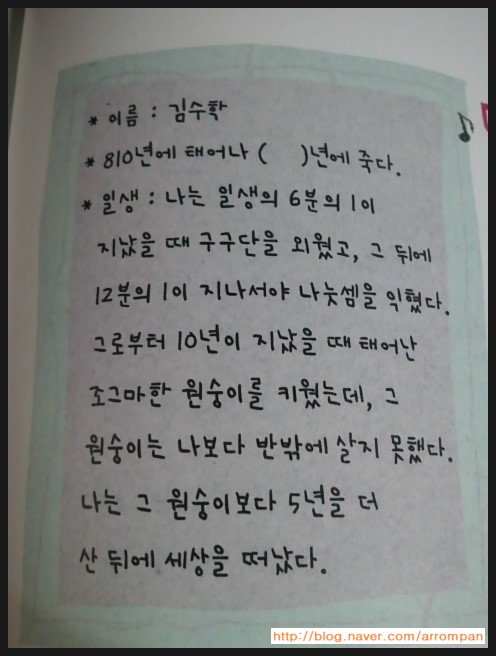 * 이름 : 김수학
* 810년에 태어나 (    )년에 죽다.
* 일생 : 나는 일생의 6분의 1이
지났을 때 구구단을 외웠고, 그 뒤에
12분의 1이 지나서야 나눗셈을 익혔다.
그로부터 10년이 지났을 때 태어난
조그마한 원숭이를 키웠는데, 그
원숭이는 나보다 반밖에 살지 못했다.
나는 그 원숭이보다 5년을 더
산 뒤에 세상을 떠났다.
http://blog.naver.com/arrompan